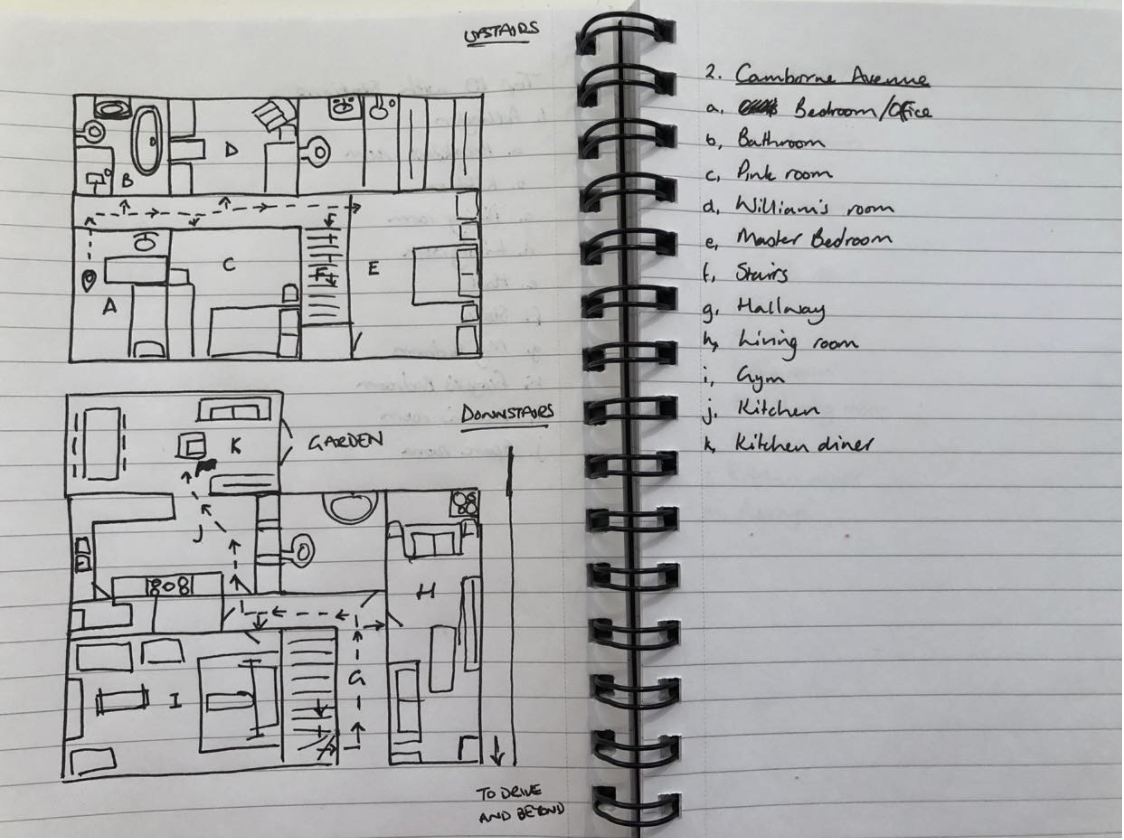 UPSTAIRS
B
D
A
C
F
E
DOWNSTAIRS
K
GARDEN
J
H
I
G
TO DRIVE
AND BEYOND
2. Camborne Avenue
a. Bedroom/Office
b, Bathroom
c, Pink room
d, William's room
e, Master Bedroom
f, Stairs
g, Hallway
h, Living room
i, Gym
j. Kitchen
k, Kitchen diner